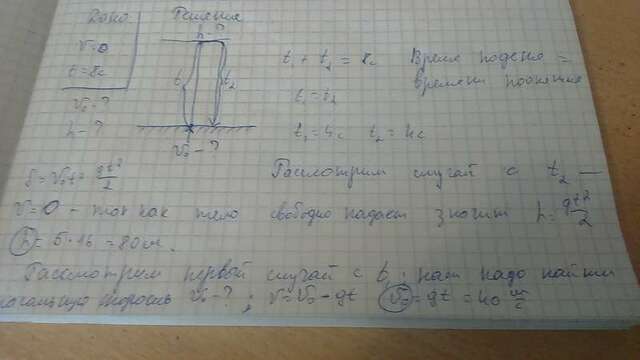 Дано Решение
h-?
v=0
t=8c
v₀-?
h-?
t₁ t₂
v₀-?
t₁ + t₂ = 8c Время падения =
времени поднятия
t₁=t₂
t₁=4c t₂=4c
S=v₀t+gt²/2 Рассмотрим случай с t₂ —
v=0 - так как тело свободно падает значит h=gt²/2
h=5·16=80м.
Рассмотрим первый случай с t₁: нам надо найти
начальную скорость v₀-?; v=v₀-gt v₀=gt=40 м/с